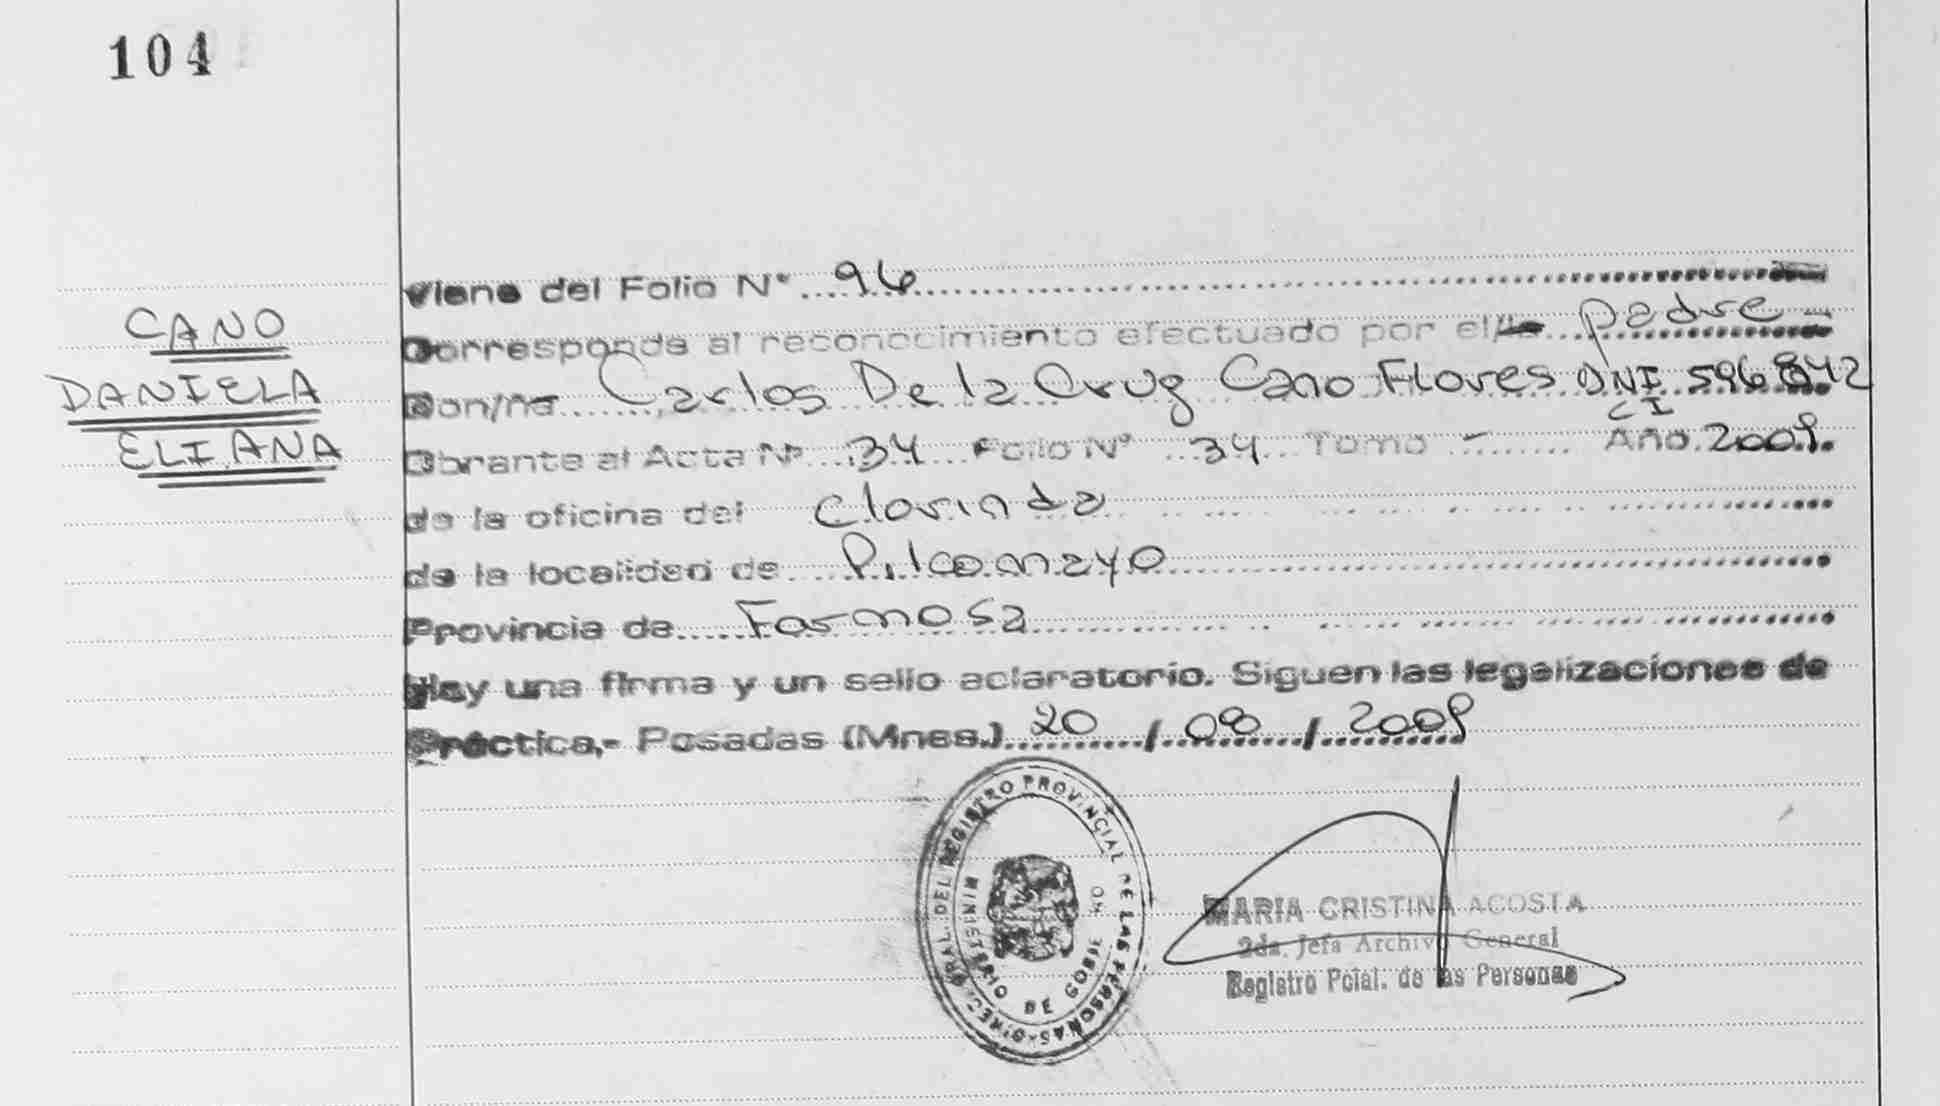 104
Viene del Folio Nº 96
CANO
DANIELA
ELIANA
Corresponde al reconocimiento efectuado por el/la padre
Don/ña Carlos De la Cruz Cano Flores DNI 596842
CI
Obrante al Acta Nº 34 Folio Nº 34 Tomo - Año 2009.
de la oficina del Clorinda
de la localidad de Pilcomayo
Provincia de Formosa
Hay una firma y un sello aclaratorio. Siguen las legalizaciones de
Práctica,- Posadas (Mnes.) 20 / 08 / 2009
REGISTRO PROVINCIAL DE LAS PERSONAS
MINISTERIO DE GOBIERNO
MARIA CRISTINA ACOSTA
2da. Jefa Archivo General
Registro Pcial. de las Personas